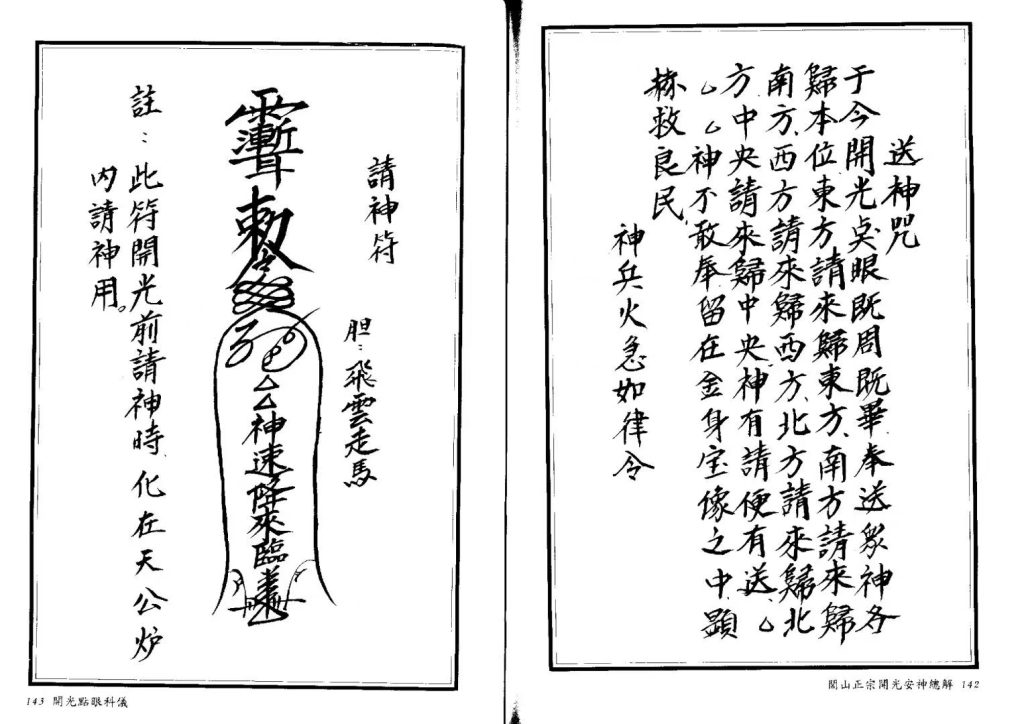 送神咒
于今開光奌眼既周既畢奉送眾神各
歸本位東方請來歸東方、南方請來歸
南方、西方請來歸西方、北方請來歸北
方、中央請來歸中央神有請便有送、△
△△神不敢奉留在金身宝像之中、顕
赫救良民、
神兵火急如律令
閭山正宗開光安神總解 142
請神符
胆：飛雲走馬
敕令
△△神速降來臨
註：此符開光前請神時化在天公炉
內請神用。
143 開光點眼科儀